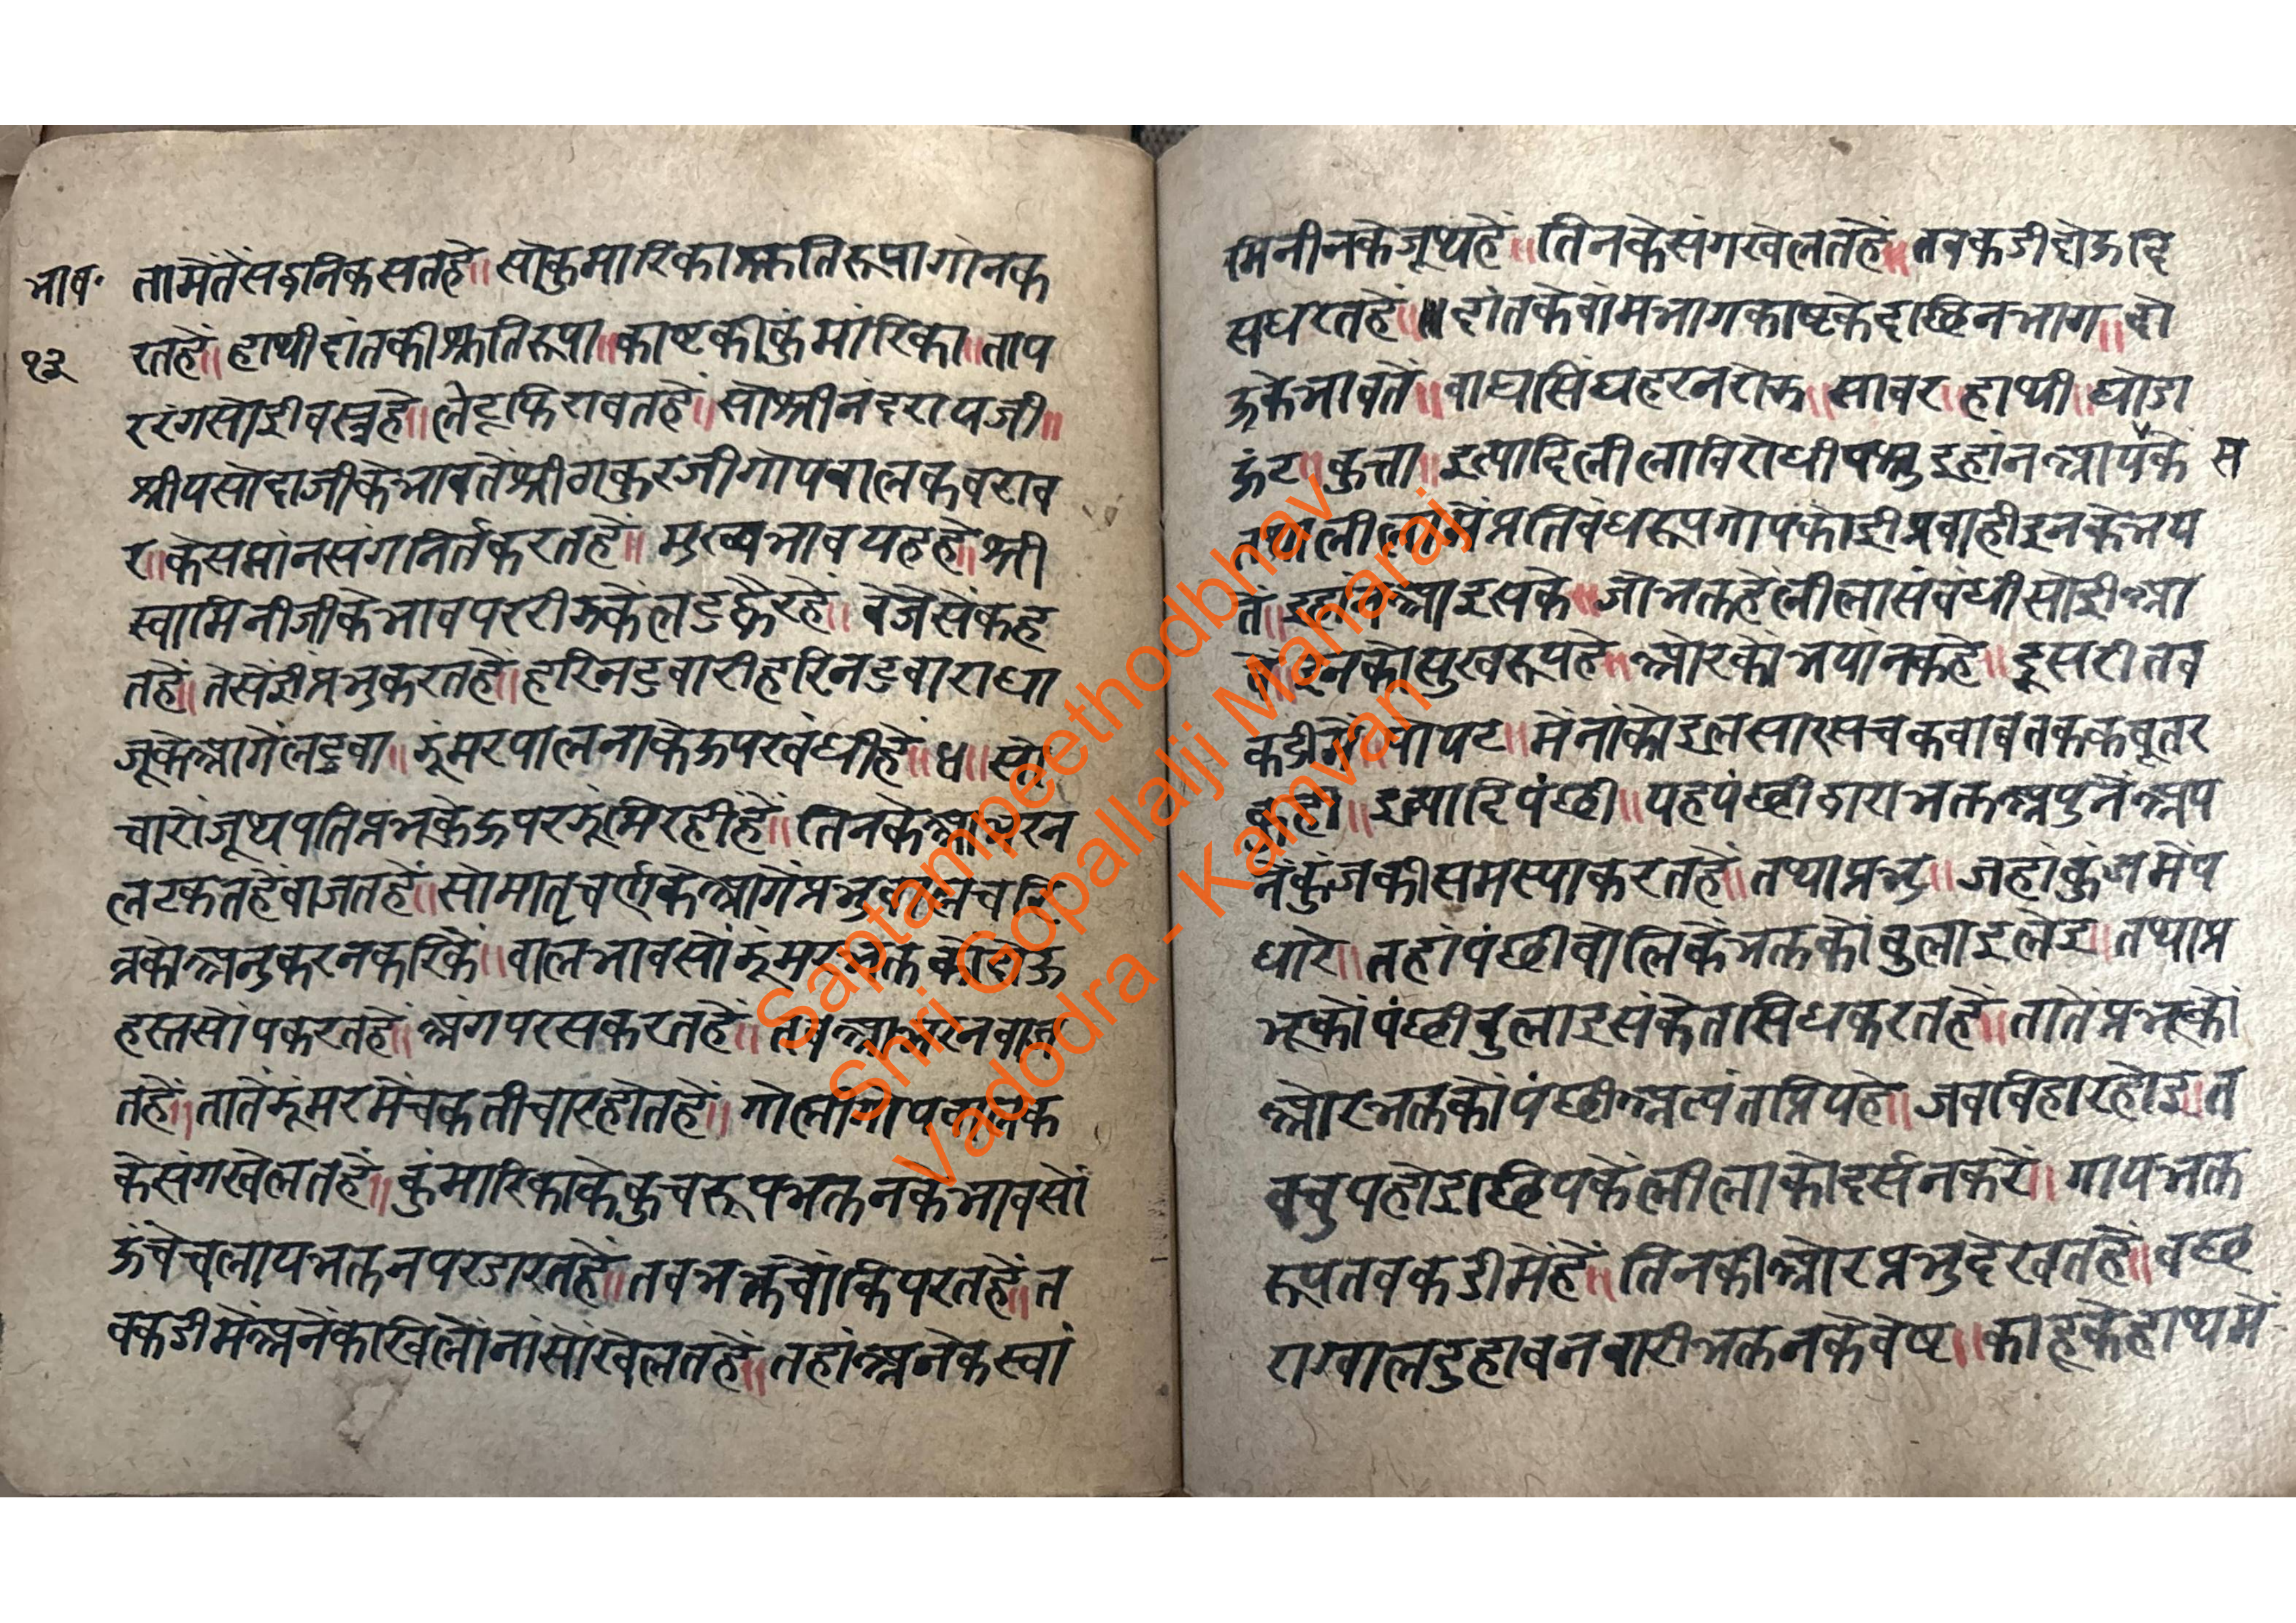 भाव॰
१३
तामेतेंसब्दनिकसतहे॥ सोकुमारिकाश्रुतिरूपागानक
रतहें॥ हाथीदांतकीश्रुतिरूपा॥ काष्टकीकुंमारिका॥ ताप
ररंगसोईवस्त्रहे॥ लेटूफिरावतहें॥ सोश्रीनंदरायजी॥
श्रीयसोदाजीकेभावतेंश्रीठाकुरजीगोपबालकबराब
र॥ केसमांनसंगनिर्तकरतहें॥ मुख्यभावयहहे॥ श्री
स्वामिनीजीकेभावपररीझकेलड्डुव्हैरहे॥ वेजेसेंकह
तहें॥ तेसेंईप्रभुकरतहें॥ हरिनडवारीहरिनडवाराधा
जूकेआगेंलड्डवा॥ झूंमरपालनाकेऊपरबंधीहें॥ ४॥ सो
चारोंजूथपतिप्रभुकेऊपरझूंमिरहीहें॥ तिनकेआभरन
लटकतहेंबाजतहें॥ सोमातृचर्णकेआगेंप्रभुबालचरि
त्रकोअनुकरनकरिकें॥ बालभावसोंझूंमरभक्तकोदोऊ
हस्तसोंपकरतहें॥ अंगपरसकरतहें॥ तबआभरनबाज
तहें॥ तातेंझूंमरमेंचकतीचारहोतहें॥ गोलीगोपबालक
केसंगखेलतहें॥ कुंमारिकाकेकुचरूपभक्तनकेभावसों
ऊंचेचलायभक्तनपरडारतहें॥ तबभक्तचोंकिपरतहें॥ त
बकडीमेंअनेंकखिलोंनांसोंखेलतहें॥ तहांअनेकस्वां
मिनीनकेजूथहें॥ तिनकेसंगखेलतहें॥ तबकडीदोऊदि
सधरतहें॥ दांतकेवांमभागकाष्टकेदाछिनभाग॥ दो
ऊकेभावतें॥ वाघसिंघहरनरोझ॥ सावर॥ हाथी॥ घोडा
ऊंट॥ कुत्ता॥ इत्यादिलीलाविरोधीपशुइहांनआयके स
तथालीलामेंप्रतिबंधरूपगोपकोईप्रवाहीइनकेभय
तें॥ इहांनआइसके॥ जोभक्तहेंलीलासंबंधीसोईआ
वें॥ इनकोसुखरूपहे॥ ओरकोभयांनकहे॥ दूसरीतब
कडीमें॥ पोपट॥ मेंनांकोइलसारसचकवाबतककबूतर
कुही॥ इत्यादिपंछी॥ यहपंछीद्वाराभक्तअपुनेंअप
नेंकुंजकीसमस्याकरतहें॥ तथाप्रभु॥ जहांकुंजमेंप
धारे॥ तहांपंछीबोलिकेंभक्तकोंबुलाइलेइ॥ तथाप्र
भूकोंपंछीबुलाइसंकेतसिधकरतहें॥ तातेंप्रभूकों
ओरभक्तकोंपंछीअत्यंतप्रियहे॥ जबबिहारहोइ॥ त
बचुपहोइछिपकेंलीलाकोदर्सनकरें॥ गोपभक्त
रूपतबकडीमेंहें॥ तिनकीओरप्रभुदेखतहें॥ बछ
राग्वालदुहावनवारीभक्तनकेवेष॥ काहूकेहाथमें